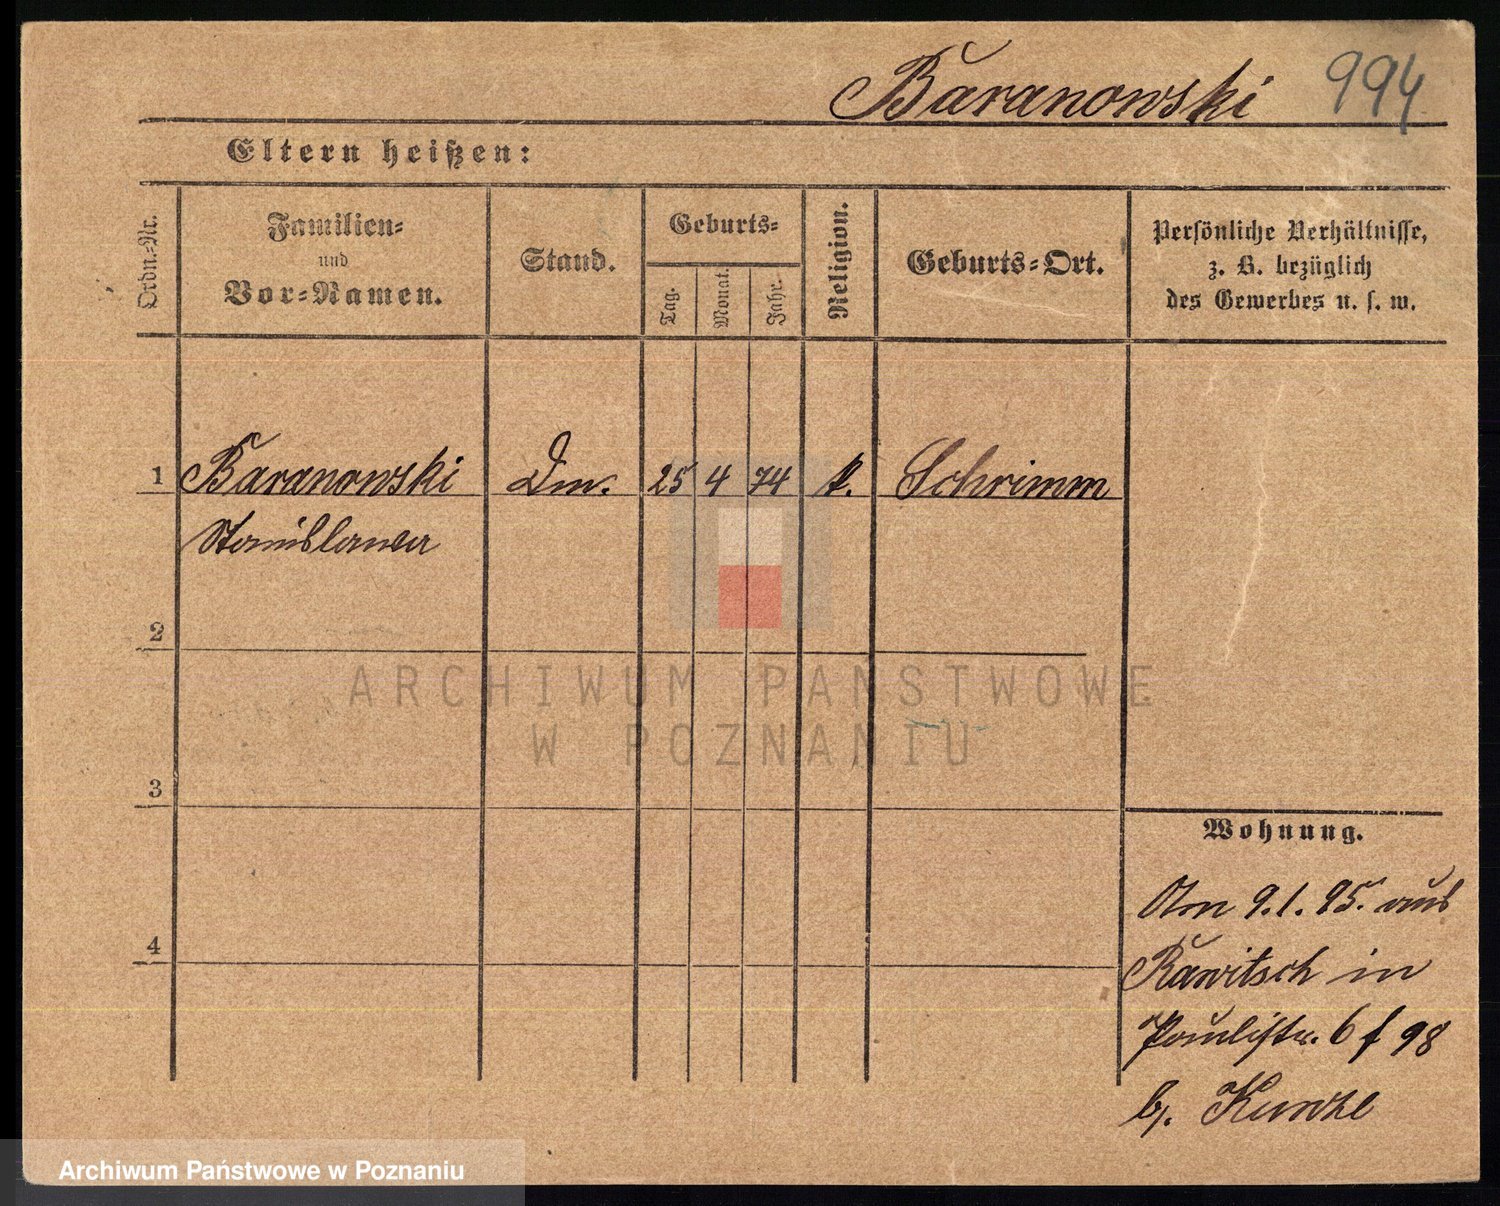 Baranowski 994
Eltern heißen:
Ordn.-Nr.
Familien-
und
Vor-Namen.
Stand.
Geburts-
Tag.
Monat.
Jahr.
Religion.
Geburts-Ort.
Persönliche Verhältnisse,
z. B. bezüglich
des Gewerbes u. s. w.
1 Baranowski Dm. 25 4 74 k. Schrimm
Stanislawa
2
ARCHIWUM PAŃSTWOWE
W POZNANIU
3
Wohnung.
Am 9.1.95. aus
Rawitsch in
Paulistr. 6 f 98
b/. Kunze
4
Archiwum Państwowe w Poznaniu